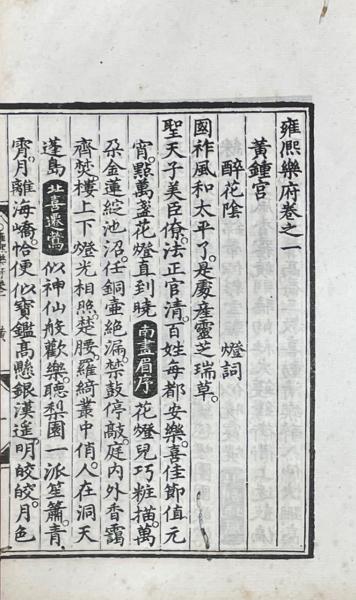 雍熙樂府卷之一
黃鍾宮
醉花陰 燈詞
國祚風和太平了。是處產靈芝瑞草。
聖天子美臣僚。法正官清。百姓每都安樂。喜佳節值元
宵。點萬盞花燈直到曉 南畫眉序 花燈兒巧粧描。萬
朵金蓮綻池沼。任銅壷絕漏。禁鼓停敲。庭內外香靄
齊焚。樓上下燈光相照。楚腰。羅綺叢中俏。人在洞天
蓬島 北喜遷鶯 似神仙般歡樂。聽梨園一派笙簫。青
霄。月離海嶠。恰便似寶鑑高懸銀漢遙。明皎皎。月色